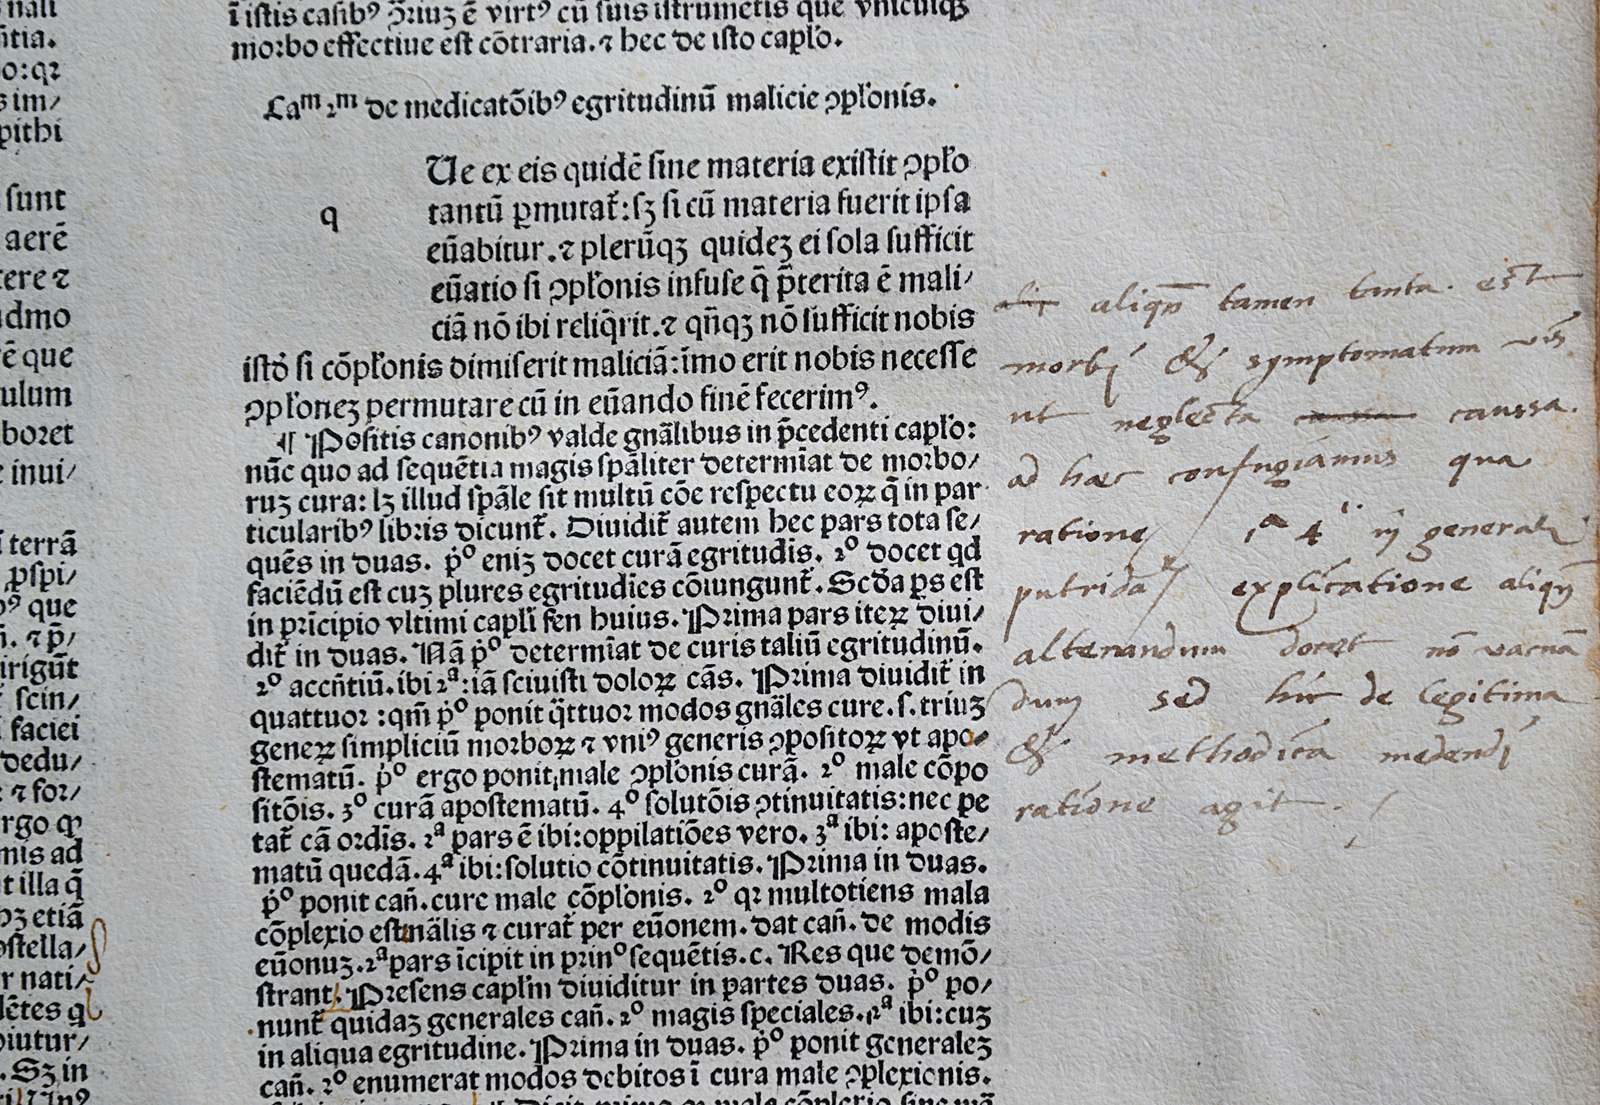 nali
ntia.
o:qꝛ
s im/
pithi
sunt
aerē
tere ⁊
admo
ē que
culum
boret
e inui/
terrā
pspi/
bꝰ que
n. ⁊ p̄/
irigūt
t̄ scin/
faciei
dedu/
: ⁊ for/
rgo ꝙ
mis ad
t illa q̄
bꝫ etiā
ostella/
r nati/
dētes q
biutur/
. Sꝫ in
ī istis casibꝰ ↄ̄riuꝫ ē virtꝰ cū suis īstrumētis que vnicuiqꝫ
morbo effectiue est cōtraria. ⁊ hec de isto cap̄lo.
Caᵐ ꝛᵐ de medicatōibꝰ egritudinū malicie ↄplōnis.
q
Ue ex eis quidē sine materia existit ↄplō
tantū ꝑmutat̄: sꝫ si cū materia fuerit ipsa
eūabitur. ⁊ plerūqꝫ quideꝫ ei sola sufficit
eūatio si ↄplōnis infuse q̄ p̄terita ē mali/
ciā nō ibi reliq̄rit. ⁊ qn̄qꝫ nō sufficit nobis
istd̄ si cōplōnis dimiserit maliciā: īmo erit nobis necesse
ↄplōneꝫ permutare cū in eūando finē fecerimꝰ.
¶ Positis canonibꝰ valde gnālibus in p̄cedenti cap̄lo:
nūc quo ad sequētia magis spāliter determīat de morbo/
ruꝫ cura: lꝫ illud spāle sit multū cōe respectu eoꝝ q̄ in par
ticularibꝰ libris dicunt̄. Diuidit̄ autem hec pars tota se/
quēs in duas. p̄º eniꝫ docet curā egritudīs. 2º docet qd
faciēdū est cuꝫ plures egritudīes cōiungunt̄. Scd̄a ps est
in prīcipio vltimi cap̄li fen huius. Prima pars iteꝝ diui/
dit̄ in duas. Nā p̄º determīat de curis taliū egritudinū.
2º accn̄tiū. ibi 2ª: iā sciuisti doloꝝ cās. Prima diuidit̄ in
quattuor: qm̄ p̄º ponit q̄ttuor modos gnāles cure. s. triuꝫ
geneꝝ simpliciū morboꝝ ⁊ vniꝰ generis ↄpositoꝝ vt apo/
stematū. p̄º ergo ponit male ↄplōnis curā. 2º male cōpo
sitōis. 3º curā apostematū. 4º solutōis ↄtinuitatis: nec pe
tat̄ cā ordīs. 2ª pars ē ibi: oppilatiōes vero. 3ª ibi: aposte/
matū quedā. 4ª ibi: solutio cōtinuitatis. Prima in duas.
p̄º ponit cañ. cure male cōplōnis. 2º qꝛ multotiens mala
cōplexio est mālis ⁊ curat̄ per eūonem. dat cañ. de modis
eūonuꝫ. 2ª pars īcipit in prinº sequētis. c. Res que demō/
strant. Presens cap̄lm diuiditur in partes duas. p̄º po/
nunt̄ quidaꝫ generales cañ. 2º magis speciales. 2ª ibi: cuꝫ
in aliqua egritudine. Prima in duas. p̄º ponit generaleꝫ
cañ. 2º enumerat modos debitos ī cura male ↄplexionis.
aliqn̄ tamen tanta. est
morbi & symptomatum vis
ut neglecta caussa.
ad haec confugiamus qua
ratione 1ª 4ⁱ in generali
putridaꝝ explicatione aliqn̄
alternandum docet nō vacuā
dum sed hic de legitima
& methodica medendi
ratione agit.